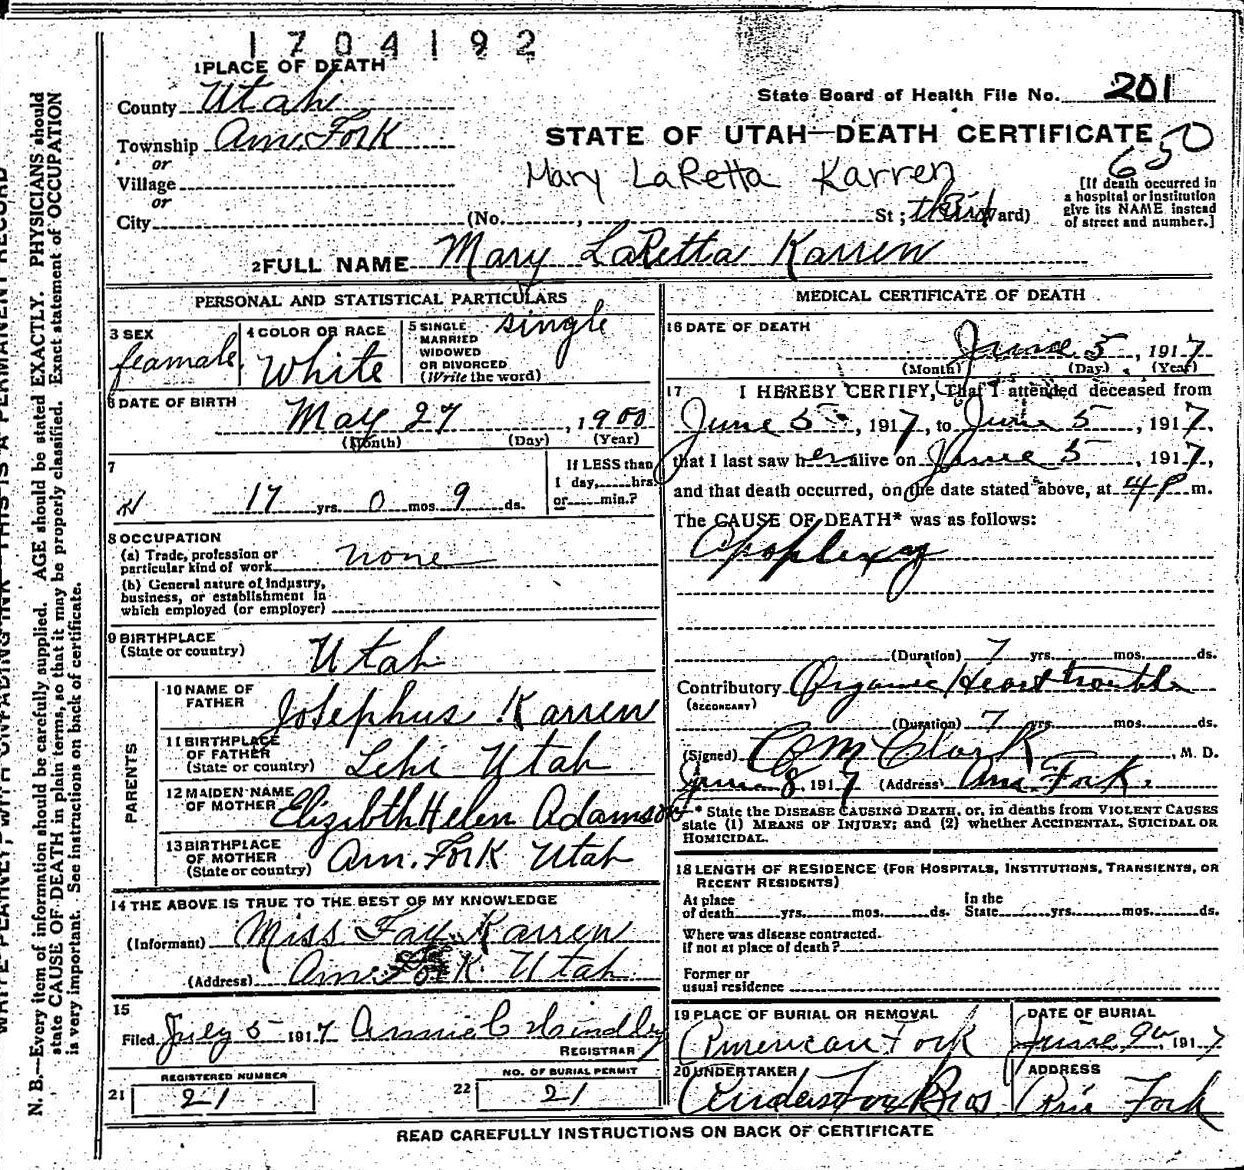 1704192
1 PLACE OF DEATH
County Utah
Township Am. Fork
or
Village
or
City
(No. , St; third Ward)
State Board of Health File No. 201
STATE OF UTAH—DEATH CERTIFICATE
650
Mary LaRetta Karren
[If death occurred in
a hospital or institution
give its NAME instead
of street and number.]
2 FULL NAME Mary LaRetta Karren
PERSONAL AND STATISTICAL PARTICULARS
3 SEX
feamale
4 COLOR OR RACE
White
5 SINGLE
MARRIED
WIDOWED
OR DIVORCED
(Write the word)
single
6 DATE OF BIRTH
May 27, 1900
(Month) (Day) (Year)
7
17 yrs. 0 mos. 9 ds.
If LESS than
1 day, hrs.
or min.?
8 OCCUPATION
(a) Trade, profession or
particular kind of work none
(b) General nature of industry,
business, or establishment in
which employed (or employer)
9 BIRTHPLACE
(State or country) Utah
PARENTS
10 NAME OF
FATHER Josephus Karren
11 BIRTHPLACE
OF FATHER
(State or country) Lehi Utah
12 MAIDEN NAME
OF MOTHER Elizibth Helen Adamson
13 BIRTHPLACE
OF MOTHER
(State or country) Am. Fork Utah
14 THE ABOVE IS TRUE TO THE BEST OF MY KNOWLEDGE
(Informant) Miss Fay Karren
(Address) Am. Fork Utah
15
Filed July 5 1917 Annie C Hindley
REGISTRAR
21 REGISTERED NUMBER
21
22 NO. OF BURIAL PERMIT
21
MEDICAL CERTIFICATE OF DEATH
16 DATE OF DEATH
June 5, 1917
(Month) (Day) (Year)
17 I HEREBY CERTIFY, That I attended deceased from
June 5, 1917, to June 5, 1917,
that I last saw her alive on June 5, 1917,
and that death occurred, on the date stated above, at 4 P m.
The CAUSE OF DEATH* was as follows:
Apoplexy
(Duration) 7 yrs. mos. ds.
Contributory Organic Heart trouble
(SECONDARY)
(Duration) 7 yrs. mos. ds.
(Signed) C M Clark, M. D.
June 8, 1917 (Address) Am. Fork.
* State the DISEASE CAUSING DEATH, or, in deaths from VIOLENT CAUSES
state (1) MEANS OF INJURY; and (2) whether ACCIDENTAL, SUICIDAL OR
HOMICIDAL.
18 LENGTH OF RESIDENCE (FOR HOSPITALS, INSTITUTIONS, TRANSIENTS, OR
RECENT RESIDENTS)
At place
of death yrs. mos. ds.
In the
State yrs. mos. ds.
Where was disease contracted.
if not at place of death?
Former or
usual residence
19 PLACE OF BURIAL OR REMOVAL
American Fork
DATE OF BURIAL
June 9th, 1917
20 UNDERTAKER
Anderson Bros
ADDRESS
Am Fork
READ CAREFULLY INSTRUCTIONS ON BACK OF CERTIFICATE
N. B.—Every item of information should be carefully supplied. AGE should be stated EXACTLY. PHYSICIANS should
state CAUSE OF DEATH in plain terms, so that it may be properly classified. Exact statement of OCCUPATION
is very important. See instructions on back of certificate.